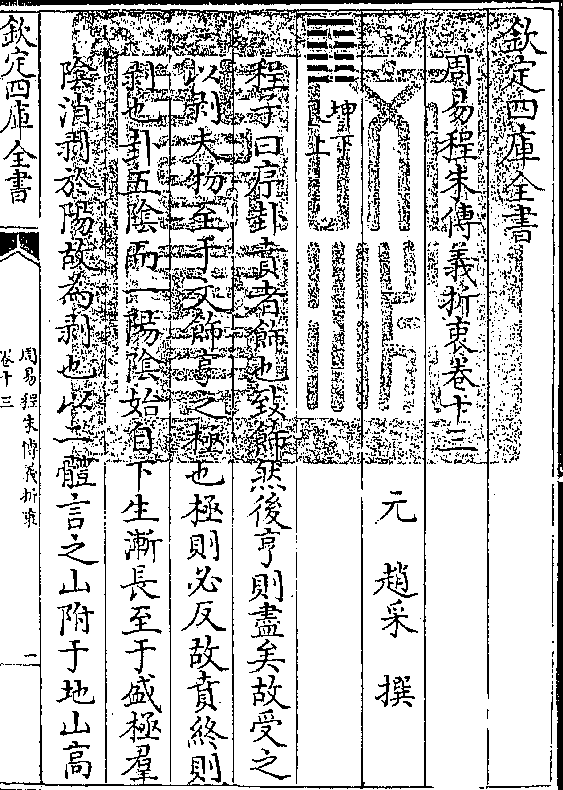 欽定四庫全書
周易程朱傳義折衷卷十三
元 趙采 撰
坤下
艮上
程子曰序卦賁者飾也致飾然後亨則盡矣故受之
以剥夫物至于文飾亨之極也極則必反故賁終則
剥也卦五陰而一陽陰始自下生漸長至于盛極羣
陰消剥於陽故為剥也以二體言之山附于地山高
欽定四庫全書
周易程朱傳義折衷
卷十三
一